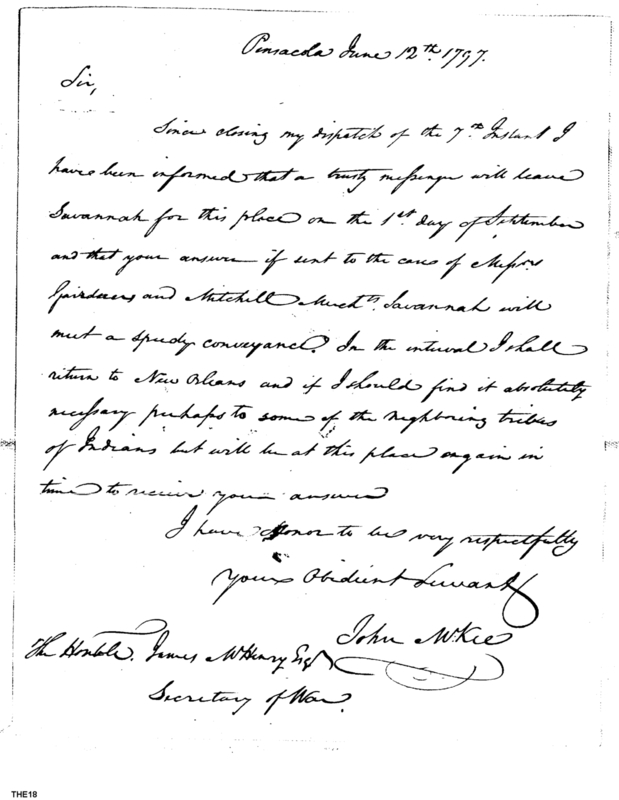 Pensacola June 12th. 1797.
Sir,
Since closing my dispatch of the 7th. Instant I
have been informed that a trusty messenger will leave
Savannah for this place on the 1st. day of September
and that your answer if sent to the care of Messrs
and Mitchell Mercht. Savannah will
meet a speedy conveyance. In the interval I shall
return to New Orleans and if I should find it absolutely
necessary perhaps to some of the neighboring tribes
of Indians but will be at this place again in
time to receive your answer
I have Honor to be very respectfully
Your Obedient Servant
John McKee
The Honble. James McHenry Esqr
Secretary of War.
THE18